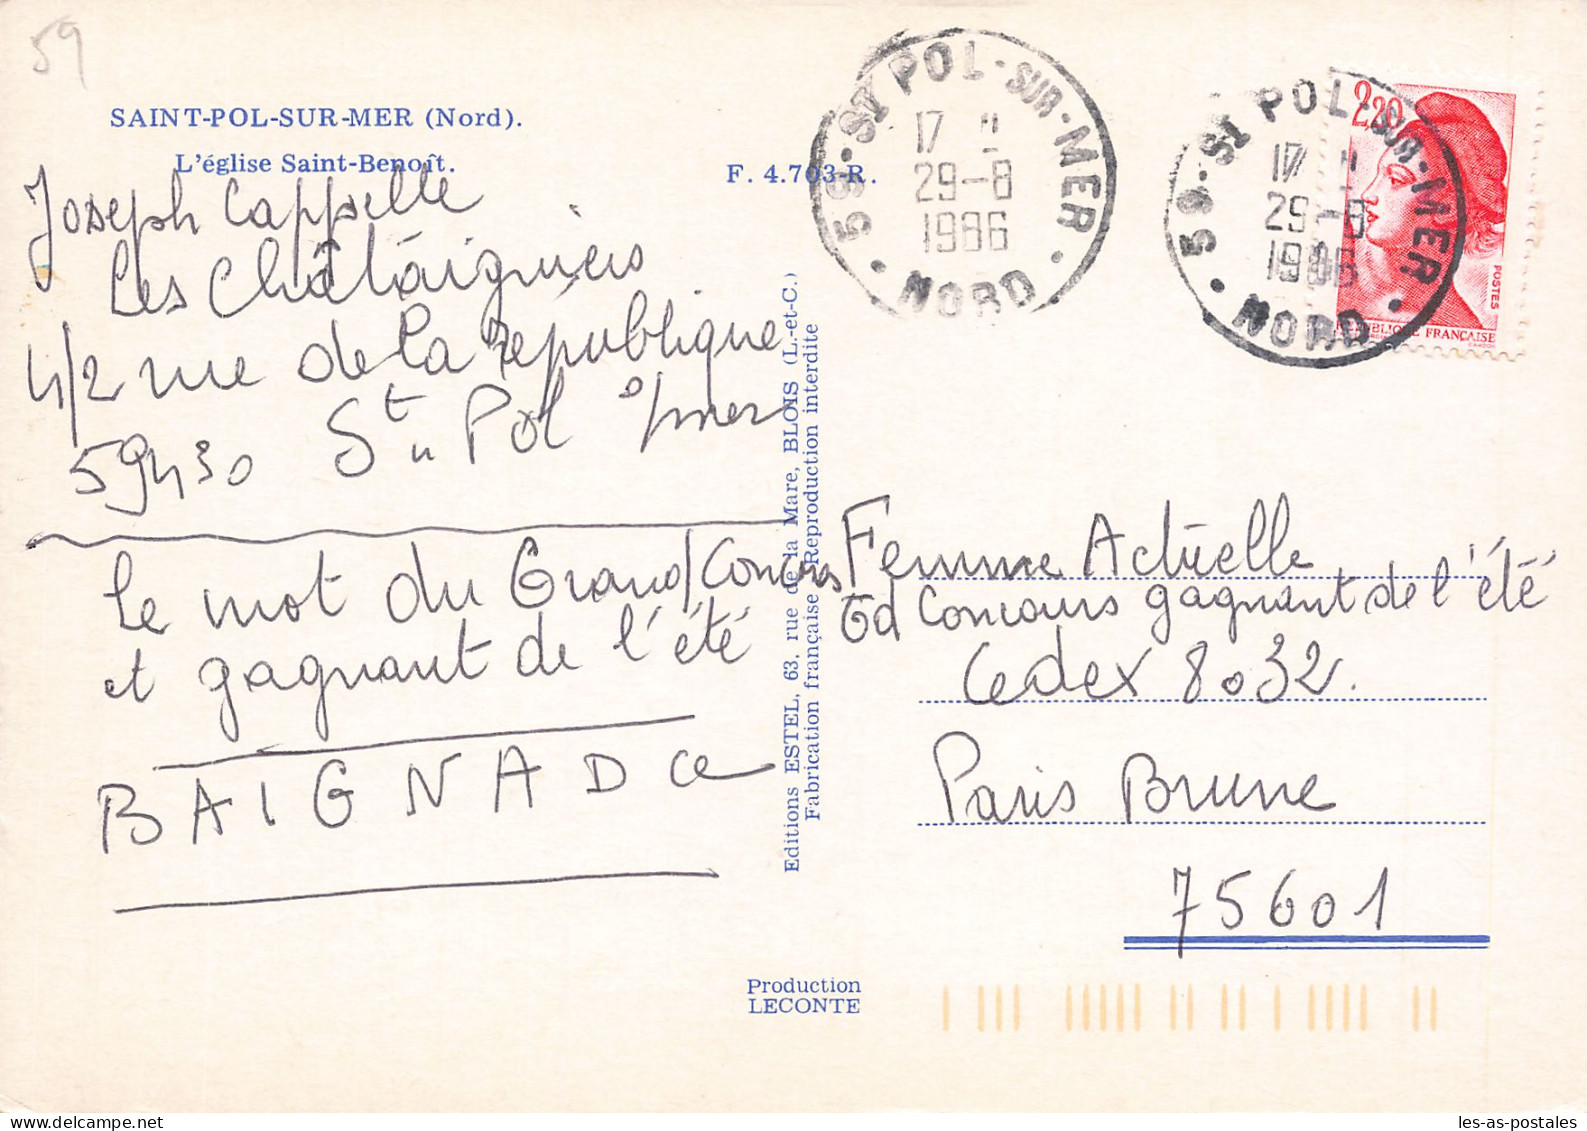 59
SAINT-POL-SUR-MER (Nord).
L'église Saint-Benoît.
F. 4.703-R.
Joseph Cappelle
Les Châtaigniers
4/2 rue de la république
59430 St Pol s/mer
Le mot du Grand Concours
et gagnant de l'été
BAIGNADE
Editions ESTEL, 63, rue de la Mare, BLOIS (L.-et-C.)
Fabrication française Reproduction interdite
Production
LECONTE
59 - ST POL - SUR - MER
17 H
29-8
1986
NORD
59 - ST POL - SUR - MER
17 H
29-8
1986
NORD
2,20
POSTES
REPUBLIQUE FRANÇAISE
Femme Actuelle
Gd Concours gagnant de l'été
Cedex 8032.
Paris Brune
75601
les-as-postales
delcampe.net